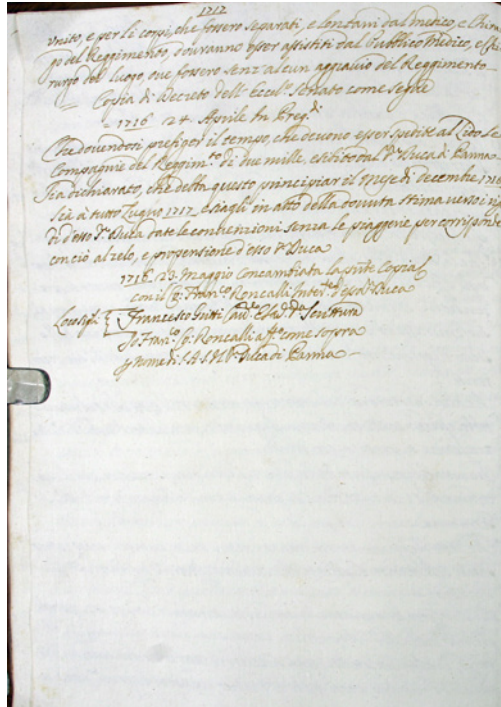 1717
unito, e per li corpi, che fossero separati, e lontani dal medico, e Chirur
go del Reggimento, dovranno esser assistiti dal Publico Medico, e Chi
rurgo del luogo ove fossero senz'alcun aggravio del Reggimento
Copia di Decreto dell'Eccel.mo Senato come segue
1716 24 Aprile In Preg.di
Che dovendosi prefiger il tempo, che devono esser spedite al Lido le
Compagnie del Regim.to di due mille, esibito dal S.r Duca di Parma
Sia dichiarato, che debba questo principiar il Mese di Decembre 1716
sia à tutto Luglio 1717, e siagli in atto della dovuta stima verso i
di d'esso S.r Duca date le convenzioni senza le piaggerie per corrisponde
con ciò al zelo, e propensione d'esso S.r Duca
1716. 23. Maggio Concambiata la pnte Copia
con il Co: Fran.co Roncalli Inter.te d'essa Duca
Francesco Savd.r alla Scrittura
Io Fran.co Co: Roncalli aff.o come sopra
Nome di S.A.S. il S.r Duca di Parma